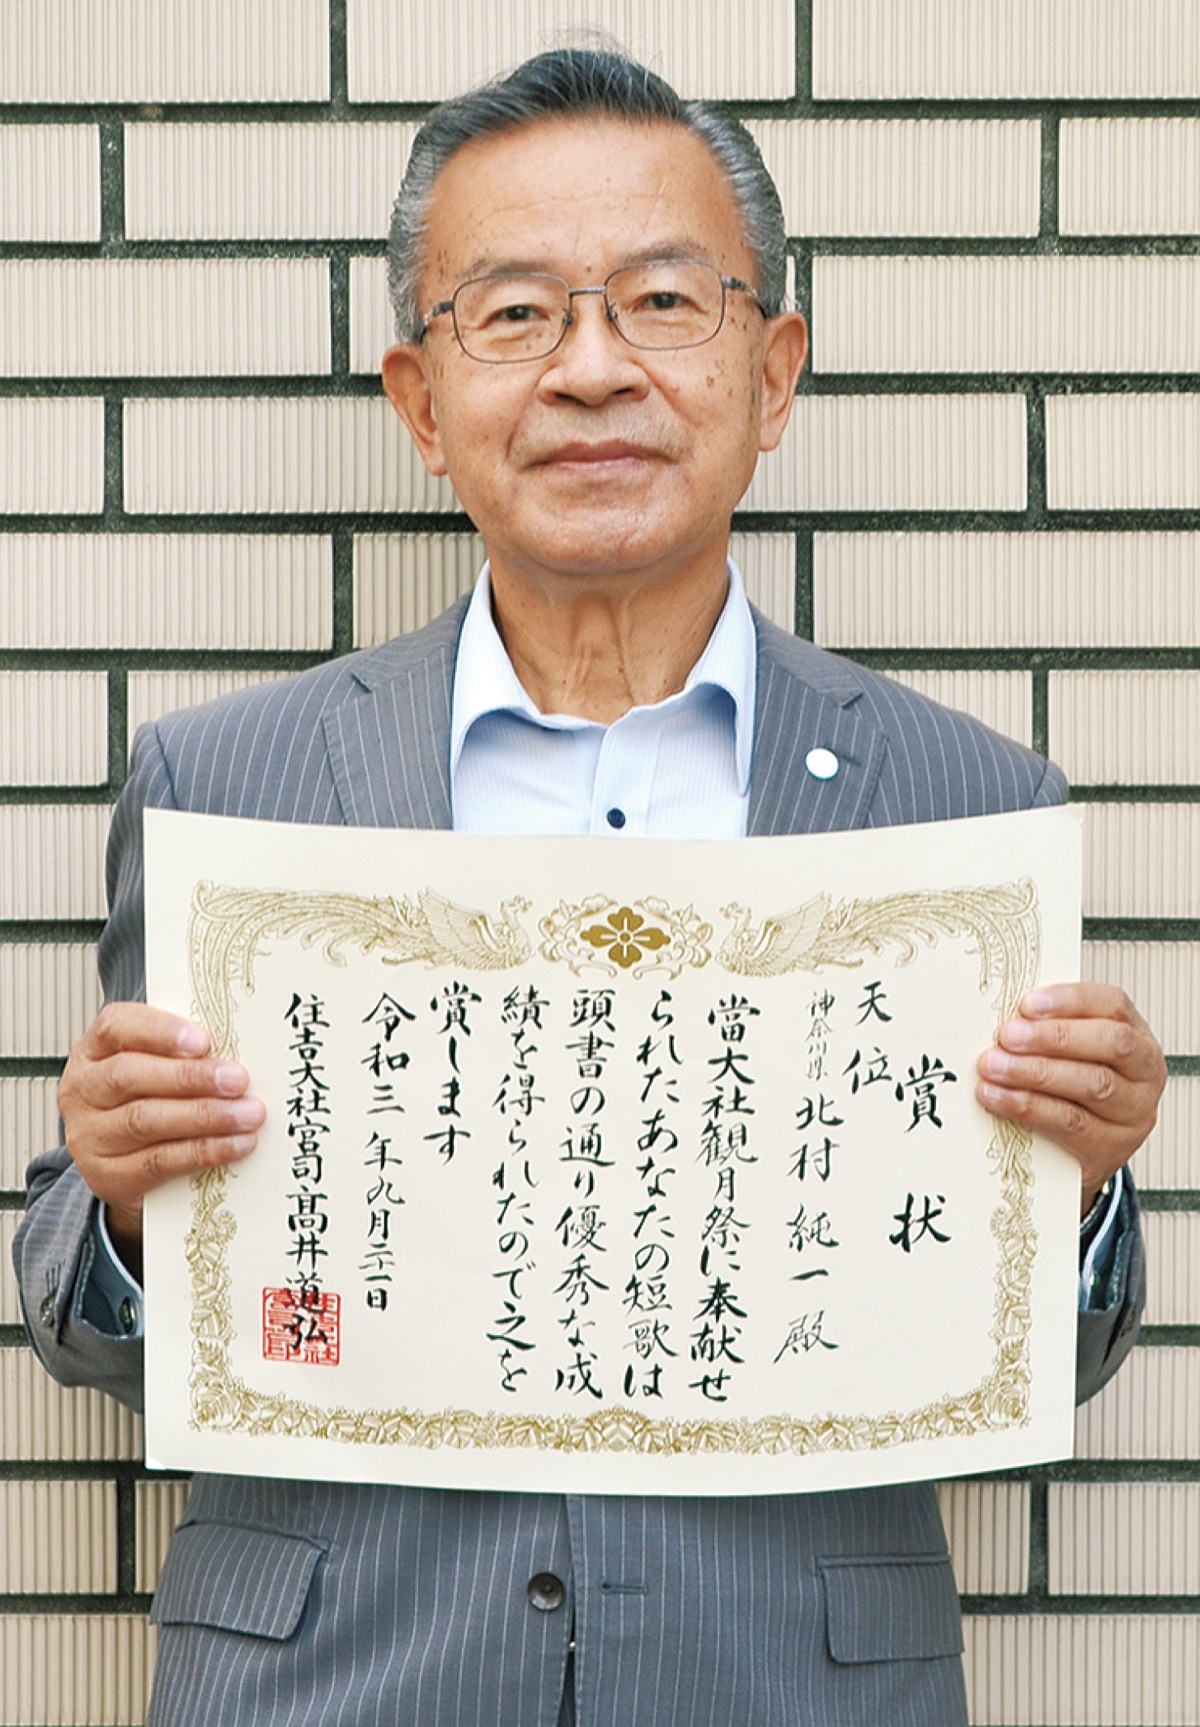 賞状
天位
神奈川県 北村純一殿
當大社観月祭に奉献せ
られたあなたの短歌は
頭書の通り優秀な成
績を得られたので之を
賞します
令和三年九月二十一日
住吉大社宮司髙井道弘